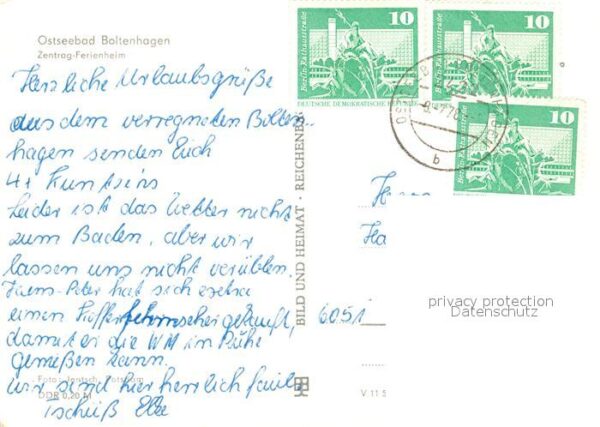 Ostseebad Boltenhagen
Zentrag-Ferienheim
Herzliche Urlaubsgrüße
aus dem verregneten Bolten-
hagen senden Euch
4x
Leider ist das Wetter nicht
zum Baden, aber wir
lassen uns nicht verüblen.
Hans-Peter hat sich extra
einen Kofferfernseher gekauft,
damit er die WM in Ruhe
genießen kann.
wir sind hier herrlich faul,
Tschüß
Foto: Jentsch, Potsdam
DDR 0,20 M
BILD UND HEIMAT · REICHENB
10
Berlin-Rathausstraße
DEUTSCHE DEMOKRATISCHE REPUBLIK
10
Berlin-Rathausstraße
10
Berlin-Rathausstraße
b
6051
privacy protection
Datenschutz
V 11 5